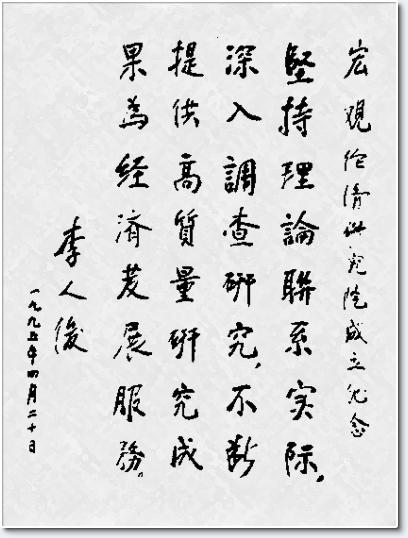 宏观经济研究院成立纪念
堅持理論聯系实际，
深入調查研究，不断
提供高質量研究成
果為经濟发展服務。
李人俊
一九九五年四月二十日